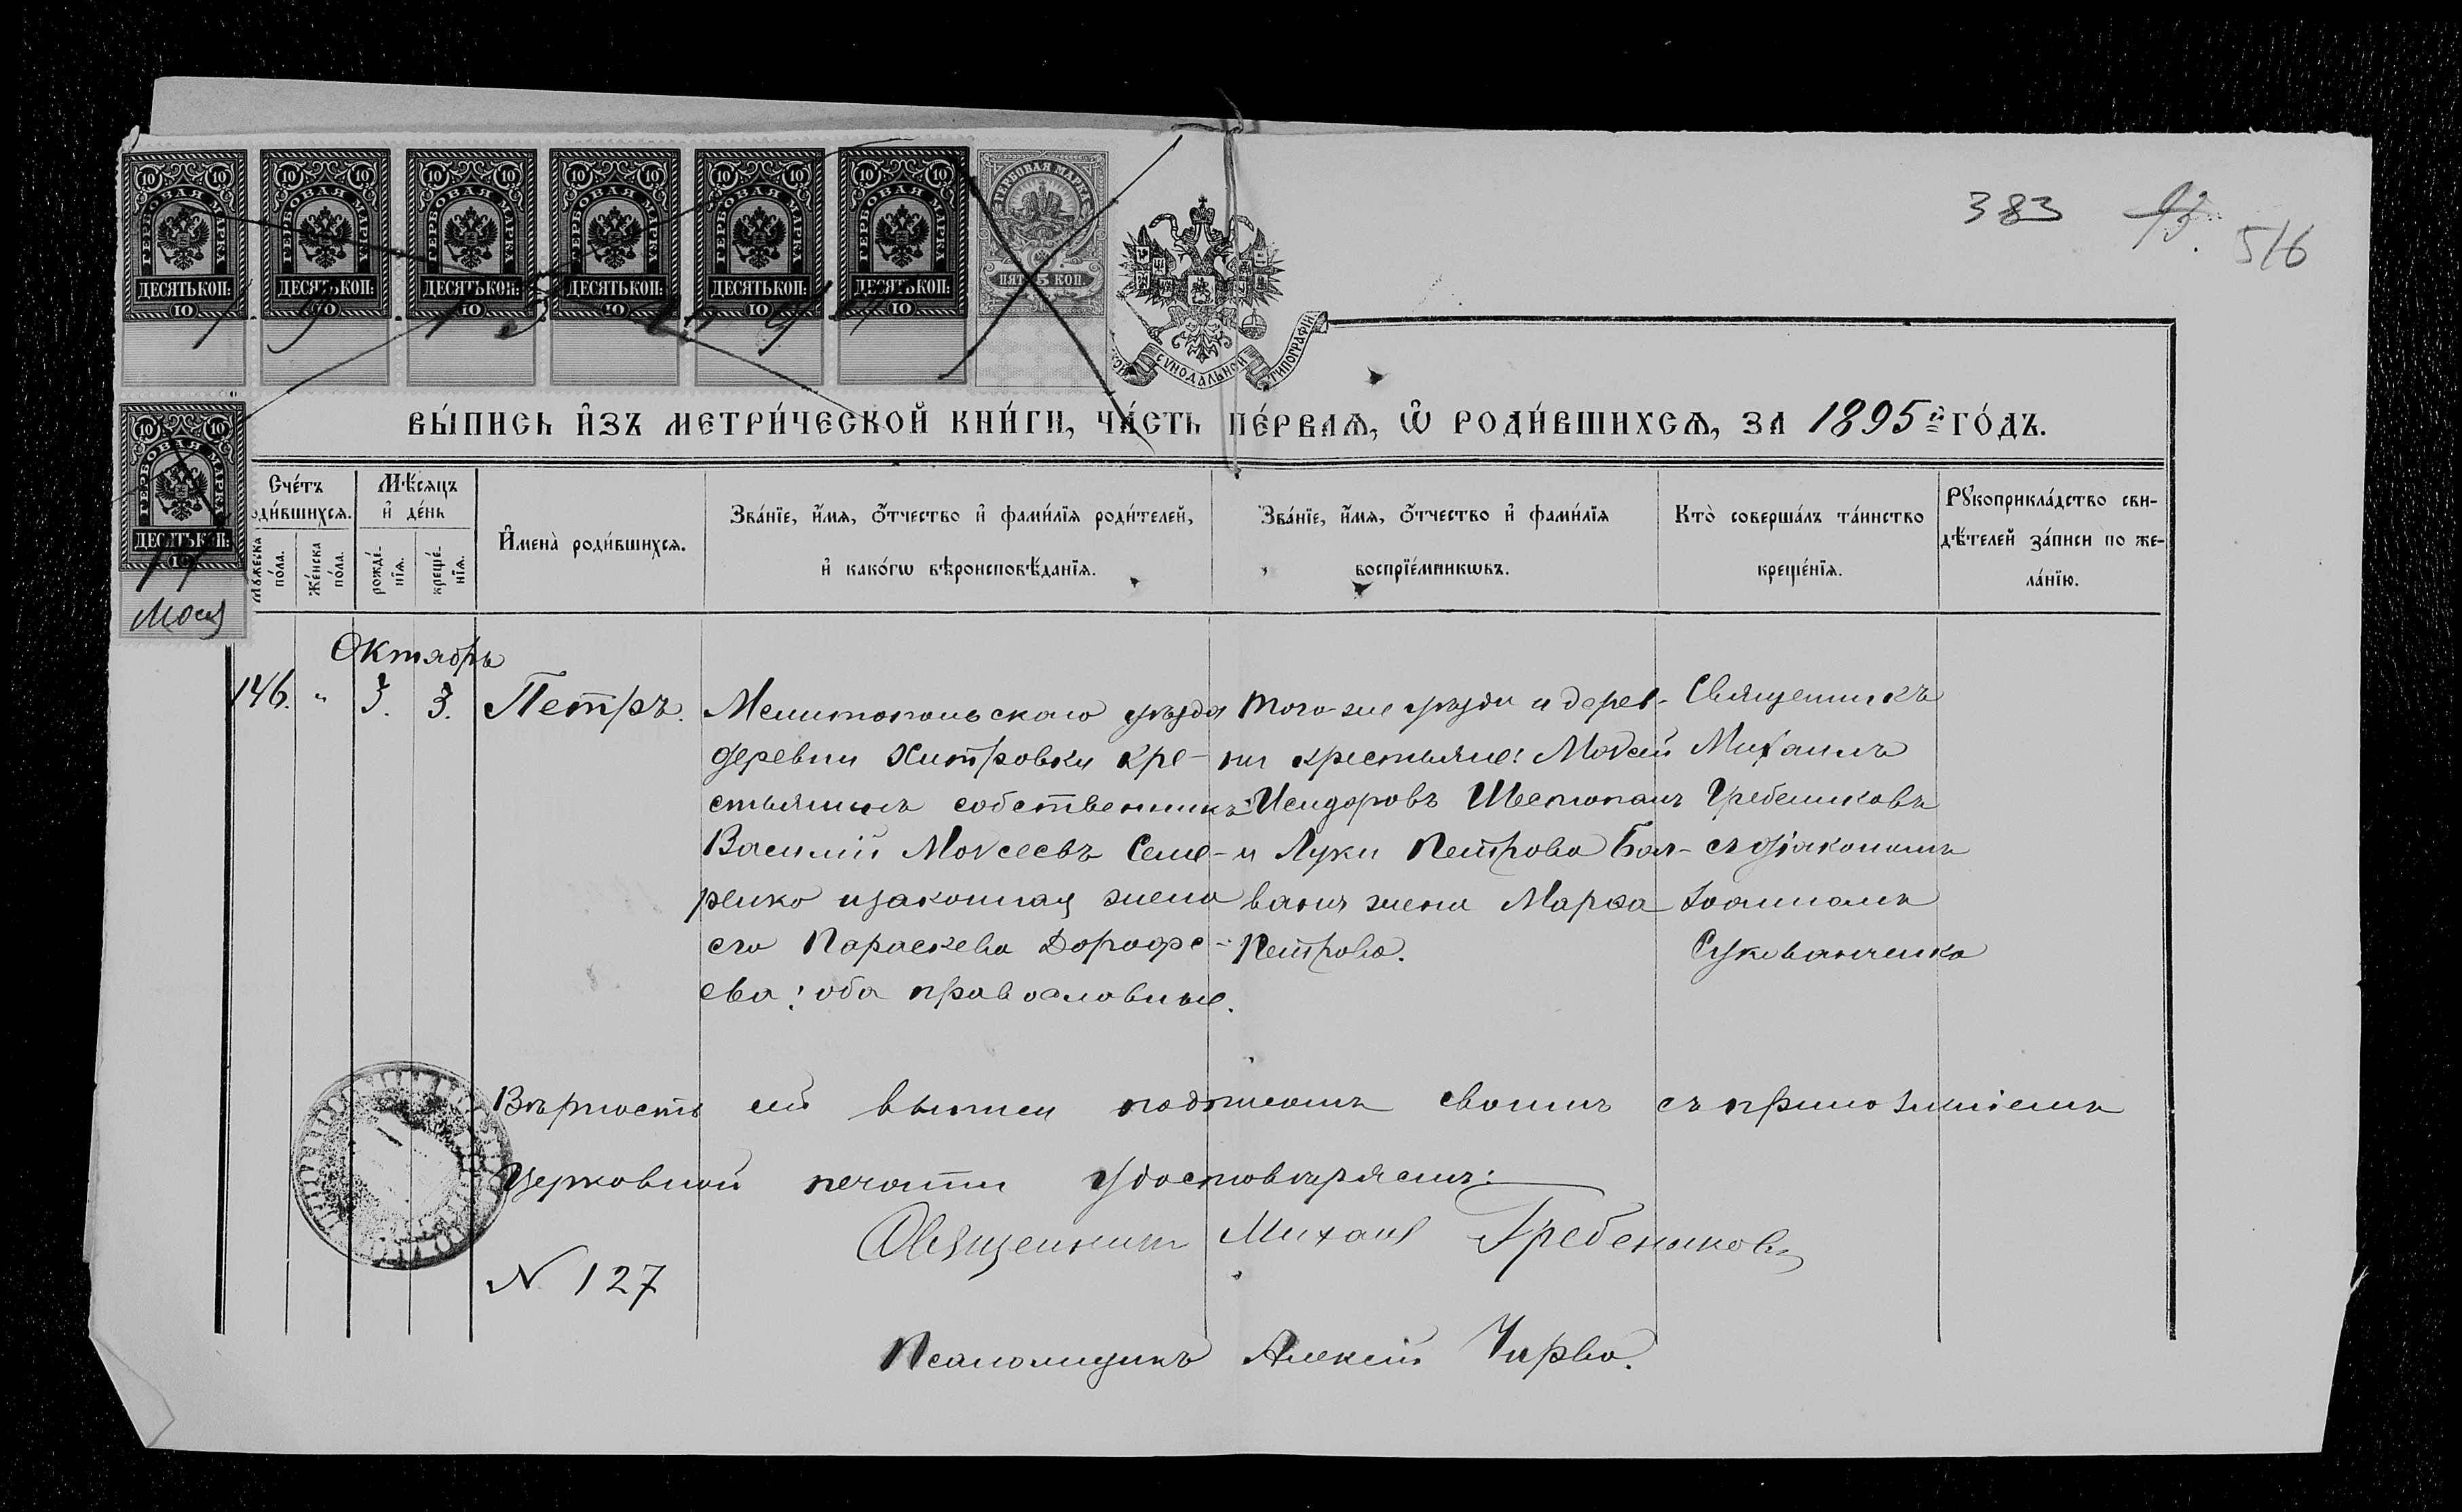 383 516
ГЕРБОВАЯ МАРКА ДЕСЯТЬ КОП: 10
ГЕРБОВАЯ МАРКА ДЕСЯТЬ КОП: 10
ГЕРБОВАЯ МАРКА ДЕСЯТЬ КОП: 10
ГЕРБОВАЯ МАРКА ДЕСЯТЬ КОП: 10
ГЕРБОВАЯ МАРКА ДЕСЯТЬ КОП: 10
ГЕРБОВАЯ МАРКА ДЕСЯТЬ КОП: 10
ГЕРБОВАЯ МАРКА ПЯТЬ 5 КОП.
СѴНОДАЛЬНОЙ ТИПОГРАФІИ
ВЫ́ПИСЬ И҆ЗЪ МЕТРИ́ЧЕСКОЙ КНИ́ГИ, ЧА́СТЬ ПЕ́РВАѦ, Ѡ҆ РОДИ́ВШИХСѦ, ЗА 1895й ГО́ДЪ.
ГЕРБОВАЯ МАРКА ДЕСЯТЬ КОП: 10
Сче́тъ роди́вшихсѧ.
Мꙋ́жеска по́ла.
Же́нска по́ла.
Мѣ́сяцъ и҆ де́нь
рожде́нїѧ.
креще́нїѧ.
И҆мена̀ роди́вшихсѧ.
Зва́нїе, и҆́мѧ, ѻ҆́тчество и҆ фами́лїѧ роди́телей,
и҆ како́гѡ вѣроисповѣ́данїѧ.
Зва́нїе, и҆́мѧ, ѻ҆́тчество и҆ фами́лїѧ
воспрїе́мникѡвъ.
Кто̀ соверша́лъ та́инство
креще́нїѧ.
Рꙋкоприкла́дство сви-
дѣ́телей за́писи по же-
ла́нїю.
Октябрь
146. " 3. 3. Петръ.
Мелитопольскаго уѣзда
деревни Хитровки кре-
стьянинъ собственникъ
Василій Моѵсеевъ Семе-
ренко и законная жена
его Параскева Дорофе-
ева: оба православные.
Того-же уѣзда и дерев-
ни крестьяне: Моѵсей
Исидоровъ Шестопалъ
и Луки Петрова Бал-
ванъ жена Марѳа
Петрова.
Священникъ
Михаилъ
Гребениковъ
съ діакономъ
Іоанномъ
Сукованченко
Вѣрность сей выписи подписомъ своимъ съ приложеніемъ
Церковной печати удостовѣряемъ:
Священникъ Михаилъ Гребениковъ
N 127
Псаломщикъ Алексѣй Чирва.